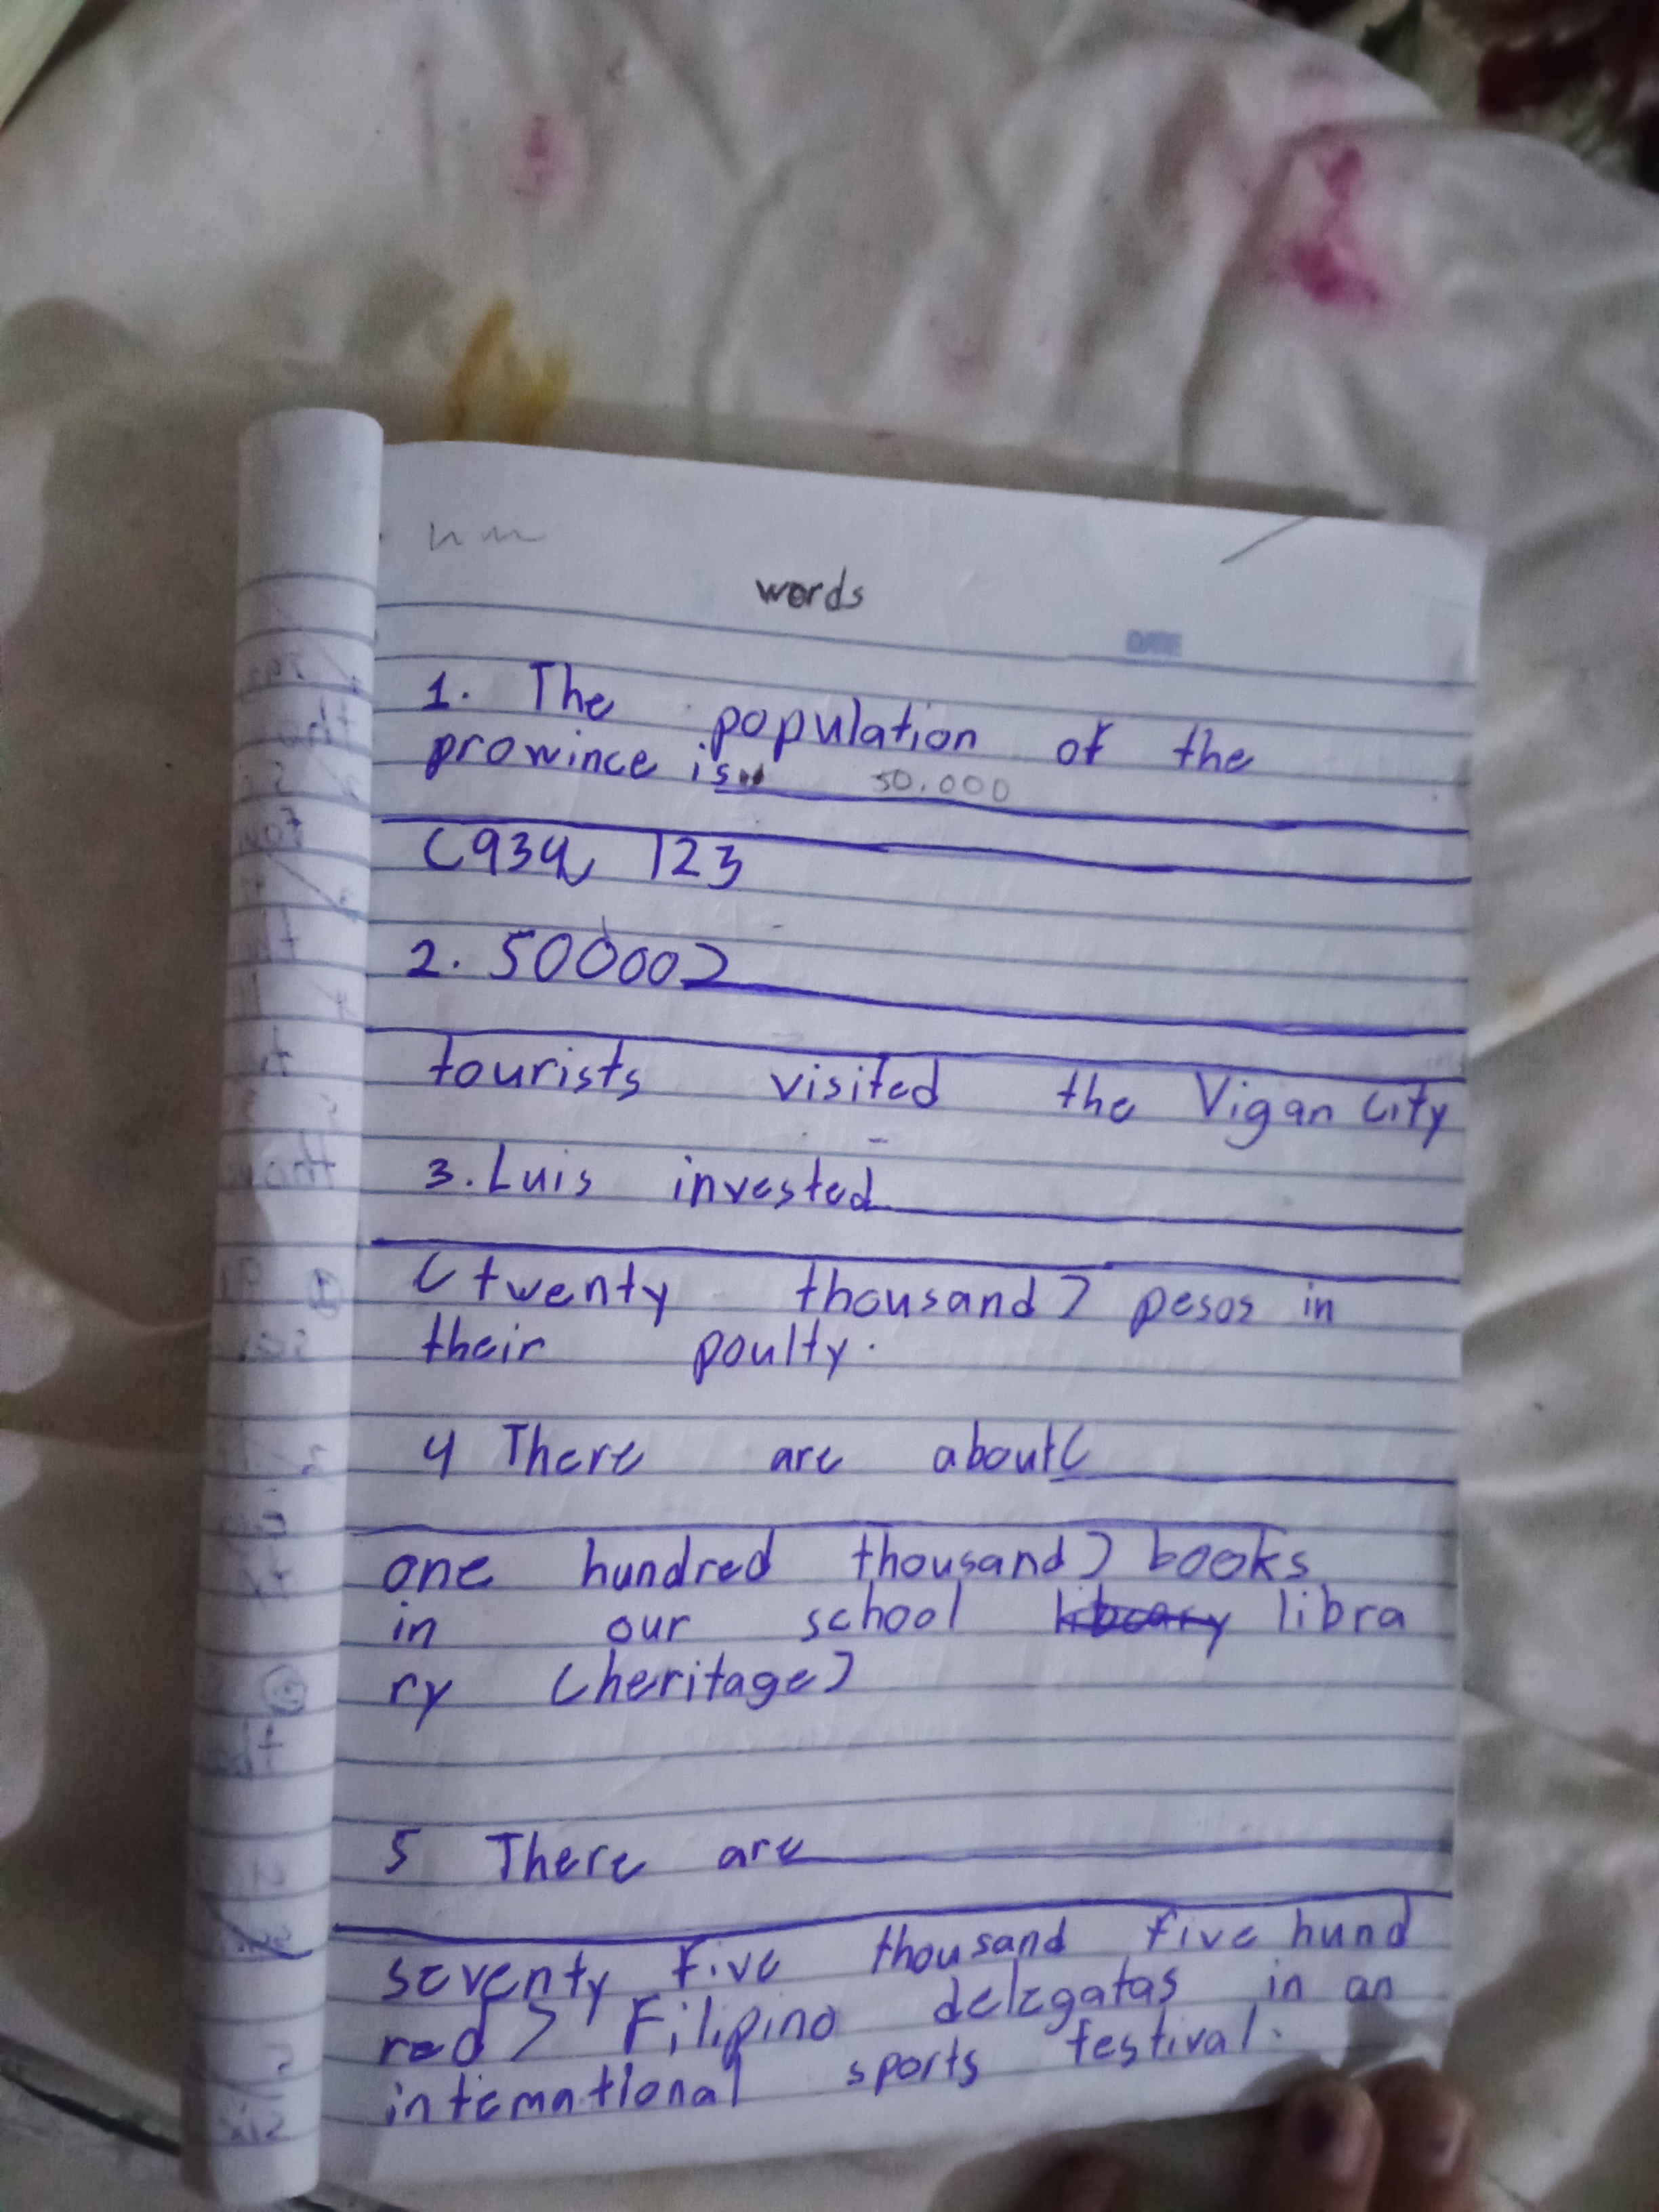 words
DATE
1. The population of the
prowince is 50.000
(934, 123
2. 500002
tourists visited the Vigan City
3. Luis invested
(twenty thousand) pesos in
their poulty.
4 There are about(
one hundred thousand) books
in our school libra
ry (heritage)
5 There are
seventy five thousand five hund
red) Filipino delegatas in an
international sports festival.